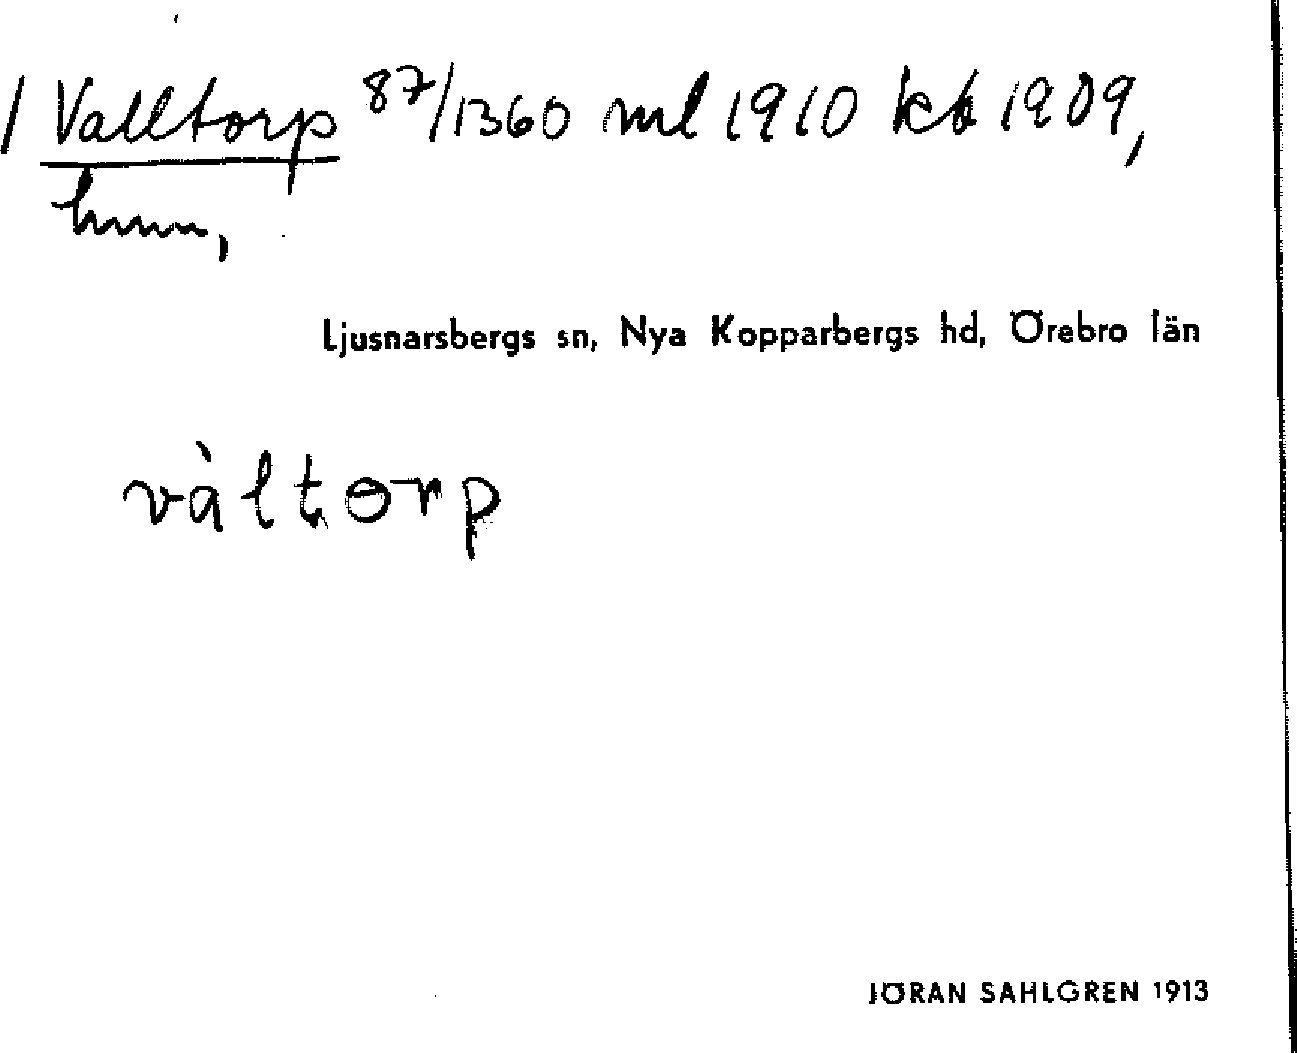 / Valltorp 87/1360 ml 1910 kb 1909,
hmn,
Ljusnarsbergs sn, Nya Kopparbergs hd, Örebro län
vàltɵrp
JÖRAN SAHLGREN 1913